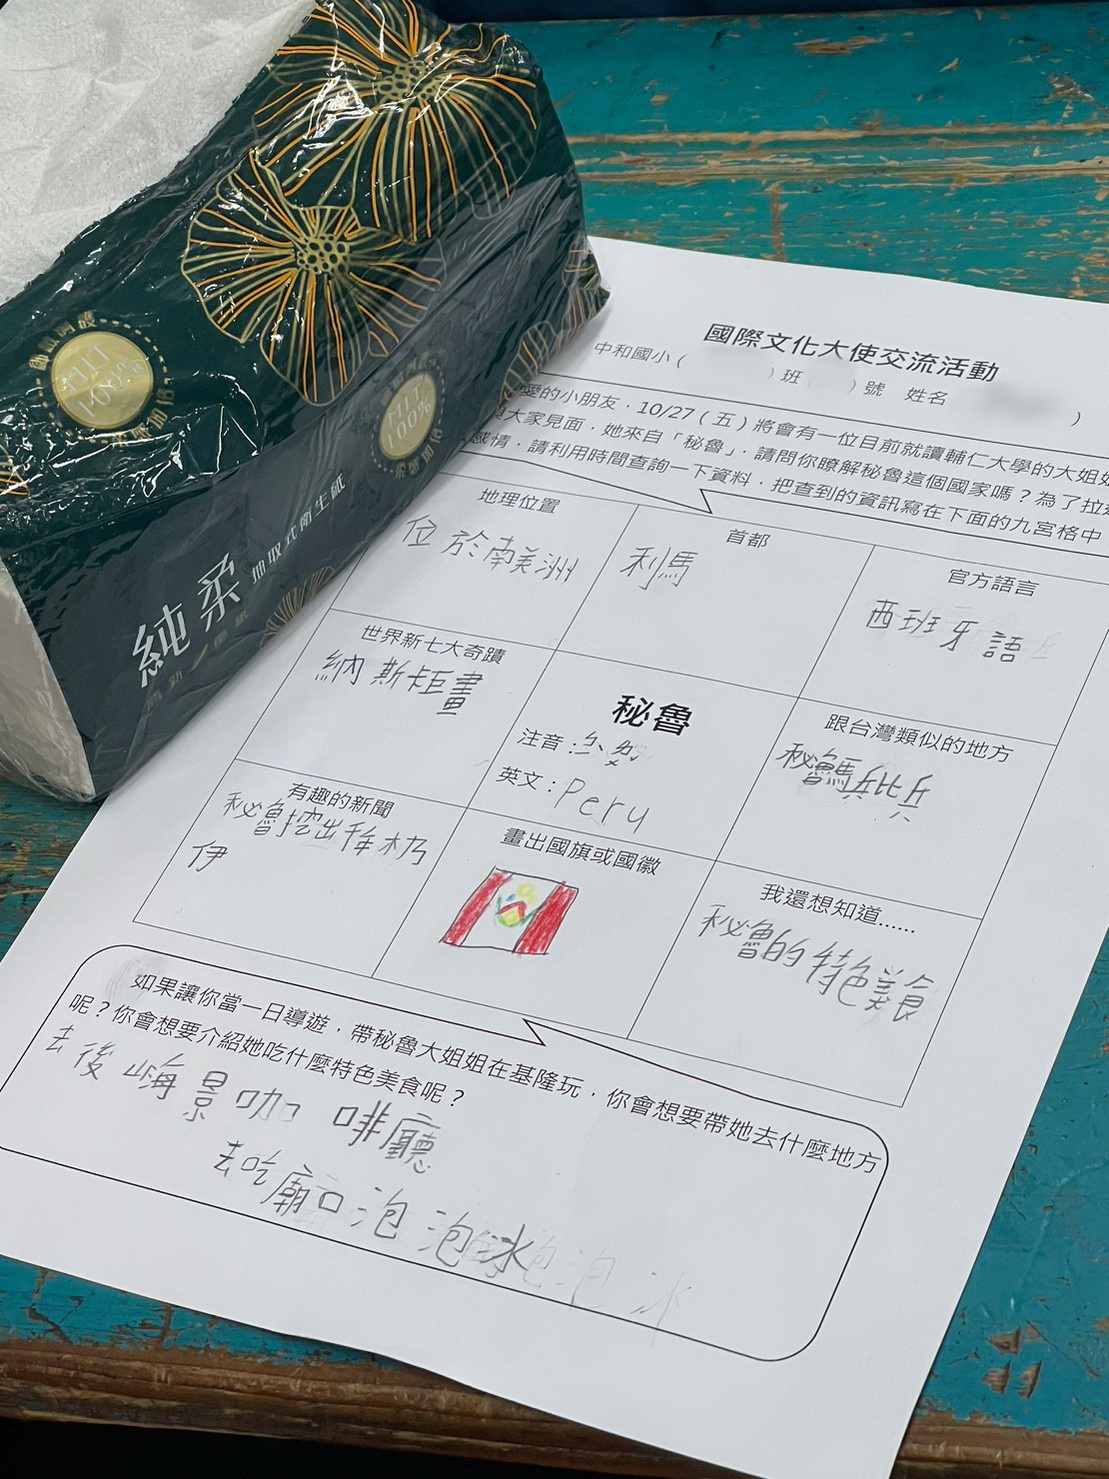 純柔
抽取式衛生紙
MIT
100%
MIT
100%
國際文化大使交流活動
中和國小（　　）班（　）號 姓名　　　）
愛的小朋友，10/27（五）將會有一位目前就讀輔仁大學的大姐
與大家見面，她來自「秘魯」，請問你瞭解秘魯這個國家嗎？為了拉
感情，請利用時間查詢一下資料，把查到的資訊寫在下面的九宮格中
地理位置
位於南美洲
首都
利馬
官方語言
西班牙語
世界新七大奇蹟
納斯卡巨畫
秘魯
注音：
英文：Peru
跟台灣類似的地方
有趣的新聞
秘魯挖出千年木乃
伊
畫出國旗或國徽
我還想知道......
秘魯的特色美食
如果讓你當一日導遊，帶秘魯大姐姐在基隆玩，你會想要帶她去什麼地方
呢？你會想要介紹她吃什麼特色美食呢？
去後嗨景咖啡廳
去吃廟口泡泡冰